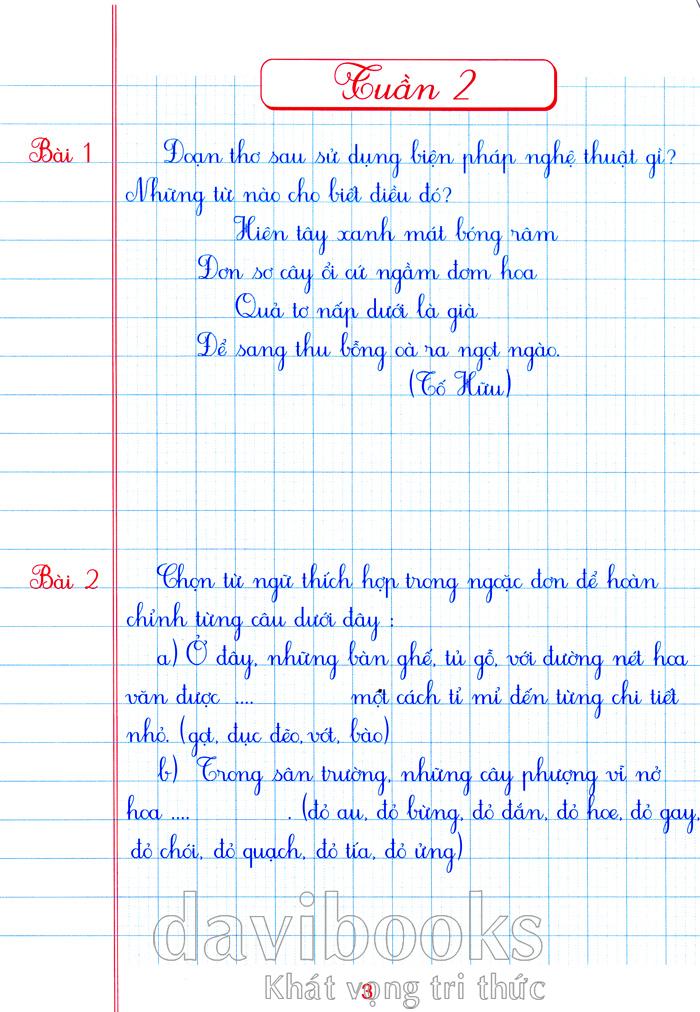 Tuần 2
Bài 1
Đoạn thơ sau sử dụng biện pháp nghệ thuật gì?
Những từ nào cho biết điều đó?
Hiên tây xanh mát bóng râm
Đơn sơ cây ổi cứ ngầm đơm hoa
Quả tơ nấp dưới lá già
Để sang thu bỗng oà ra ngọt ngào.
(Tố Hữu)
Bài 2
Chọn từ ngữ thích hợp trong ngoặc đơn để hoàn
chỉnh từng câu dưới đây :
a) Ở đây, những bàn ghế, tủ gỗ, với đường nét hoa
văn được .... một cách tỉ mỉ đến từng chi tiết
nhỏ. (gọt, đục đẽo, vót, bào)
b) Trong sân trường, những cây phượng vĩ nở
hoa .... . (đỏ au, đỏ bừng, đỏ đắn, đỏ hoe, đỏ gay,
đỏ chói, đỏ quạch, đỏ tía, đỏ ửng)
davibooks
Khát vọng tri thức
3